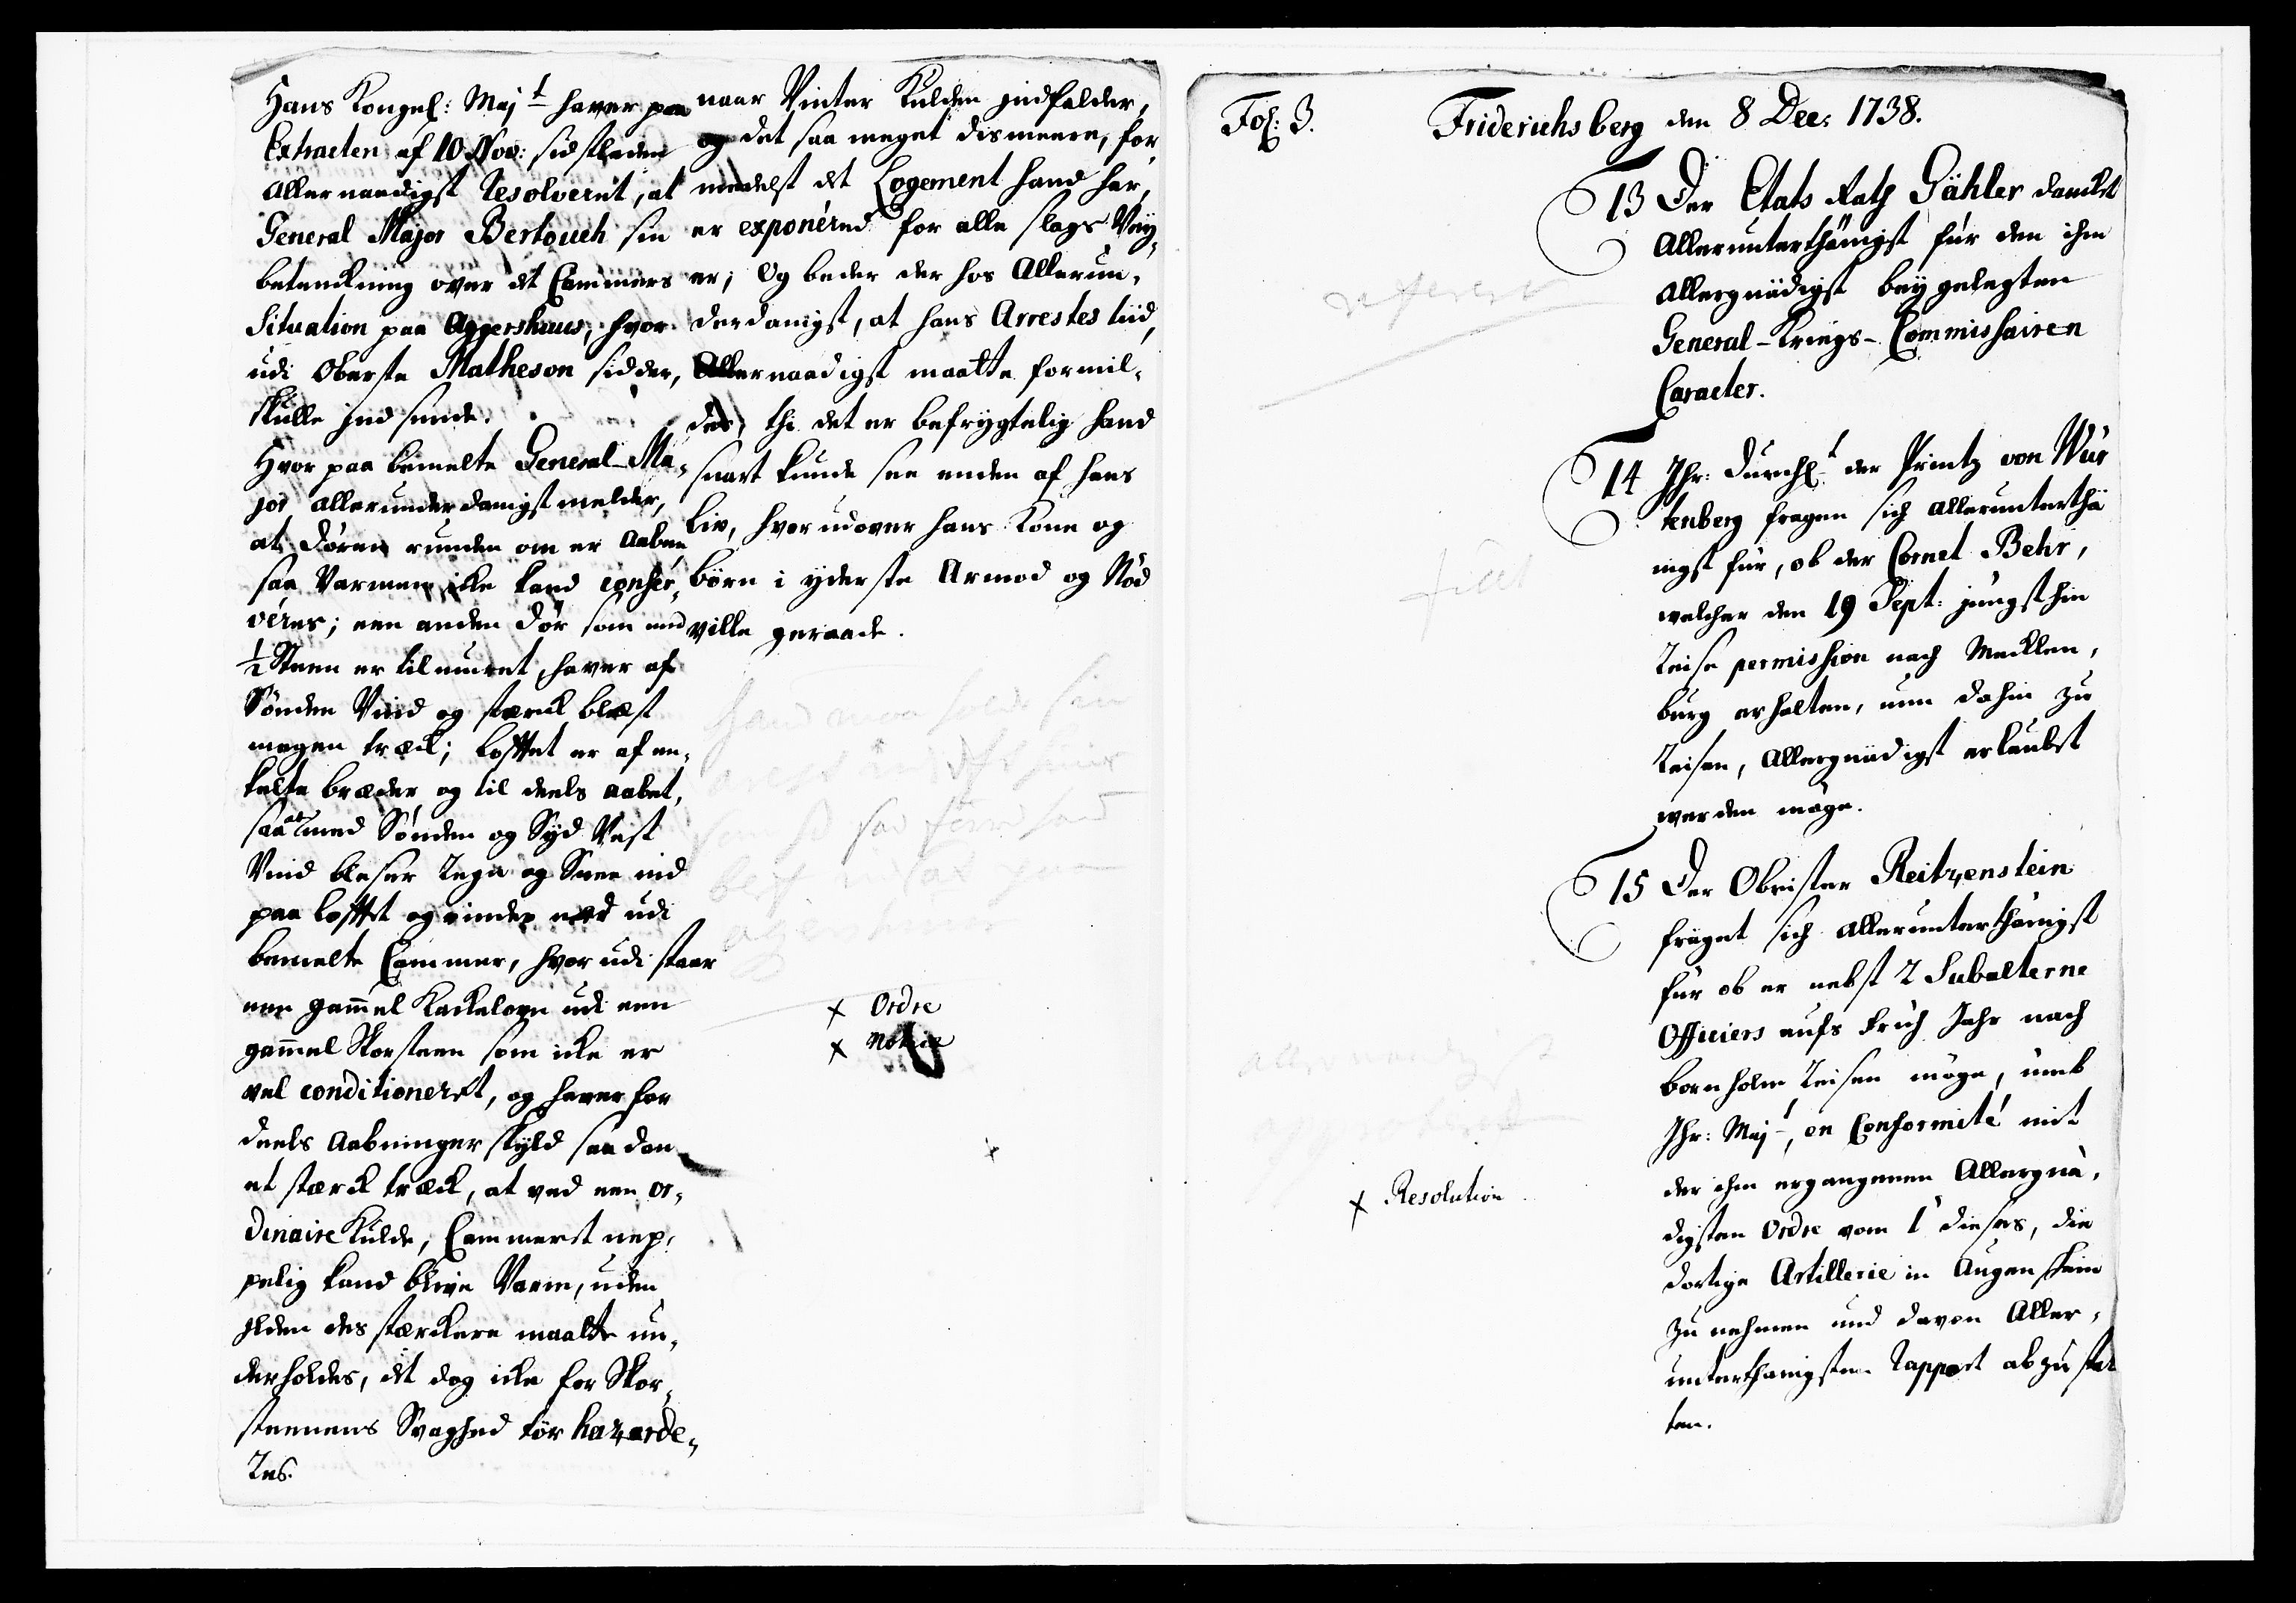 Hans Kongel: Majt haver paa
Extracten af 10 Nov: sidstleden
Allernaadigst Resolveret, at
General Major Bertouch sin
betenckning over det Cammers
Situation paa Aggershuus, hvor
udi Oberste Matheson sidder,
skulle indsende.
Hvor paa bemelte General-Ma-
jor allerunderdanigst melder,
at Døren runden om er Aaben
saa Varmen icke kand conser-
veres; een anden Dør som med
½ Steen er tilmuret, haver af
Sønden Vind og stærck blæst
megen træck; Lofftet er af en-
kelte bræder og til deels aabet,
saa at med Sønden og Syd Vest
Vind blæser Regn og Snee ind
paa Lofftet og rinder ned udi
bemelte Cammer, hvor udi staar
een gammel Kackelovn udi een
gammel Skorsteen som icke er
vel conditioneret, og haver for
deels Aabninger skyld saadan
et stærck træck, at ved een or-
dinaire Kulde, Cammeret nep-
pelig kand blive Varm, uden
Ilden des stærckere maatte un-
derholdes, det dog icke for Skor-
steenens Svaghed tør hazarde-
res.
naar Vinter Kulden indfalder,
og det saa meget dismeere, for-
medelst det Logement hand har,
er exponéred for alle slags Vey-
er; Og beder der hos Allerun-
derdanigst, at hans Arrestes tiid
Allernaadigst maatte formil-
des, thi det er befrygtelig hand
snart kunde see enden af hans
Liv, hvorudover hans Kone og
børn i yderste Armod og Nød
ville geraade.
hand maa
x Ordre
x Notice
Fol: 3.
Friderichsberg den 8 Dec: 1738.
13 Der Etats Rath Gähler danckt
Allerunterthänigst für den ihm
Allergnädigst beygelegten
General-Kriegs-Commissairen
Caracter.
14 Ihr: Durchlt der Printz von Wür
tenberg fragen sich Allerunterthä
nigst für, ob der Cornet Behr,
welcher den 19 Sept: jüngsthin
Reise permission nach Mecklen-
burg erhalten, nun dahin zu
Reisen, Allergnädigst erlaubet
werden möge.
fiat
15 Der Obrister Reitzenstein
fräget sich Allerunterthänigst
für ob er nebst 2 Subalterne
Officiers aufs Früh Jahr nach
Bornholm Reisen möge, umb
Ihr: Majt, en Conformité mit
der ihm ergangenen Allergnä-
digsten Ordre vom 1 dieses, die
dortige Artillerie in Augenschein
zu nehmen und davon Aller-
unterthänigsten Rapport abzustat
ten.
x Resolution